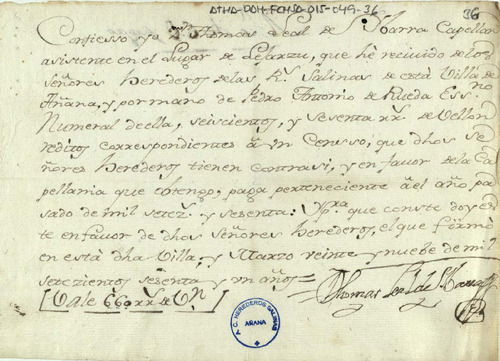 ATHA-DAH-FCHSA-015-049-36
36
Confiesso yo Dn Thomas Leal de Ybarra Capellan
asistente en el Lugar de Lejarzu, que hè recivido de los
Señores Herederos de las Rs Salinas de està Villa de
Añana, y por mano de Pedro Antonio de Rueda Essno
Numeral de ella, seiscientos, y sesenta rrs de Vellon
reditos correspondientes à un Censso, que dhos Se-
ñores Herederos tienen contra si, y en favor de la Ca-
pellania que obtengo, paga perteneciente àel año pa-
sado de mil setezs y sesenta: Ypra que conste doy es-
te en favor de dhos Señores Herederos, el que firmo
en està dha Villa, y Marzo veinte y nuebe de mil
setezientos sesenta y un años=
Thomas Leal de Ybarra
[Vale 660 rrs de Vn]
A.C. HEREDEROS SALINAS
AÑANA